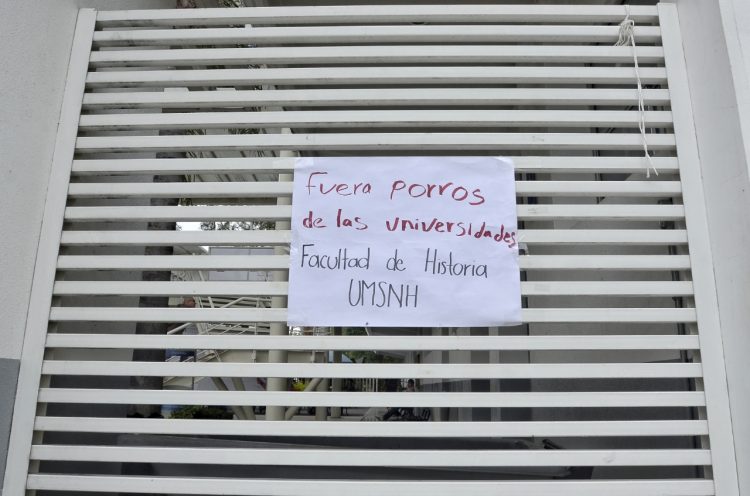 Fuera porros
de las universidades
Facultad de Historia
UMSNH